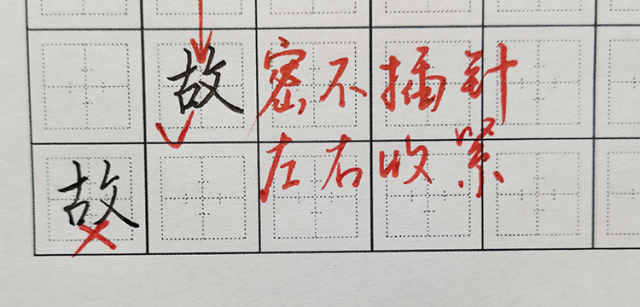 故 密不插针
左右收紧
故